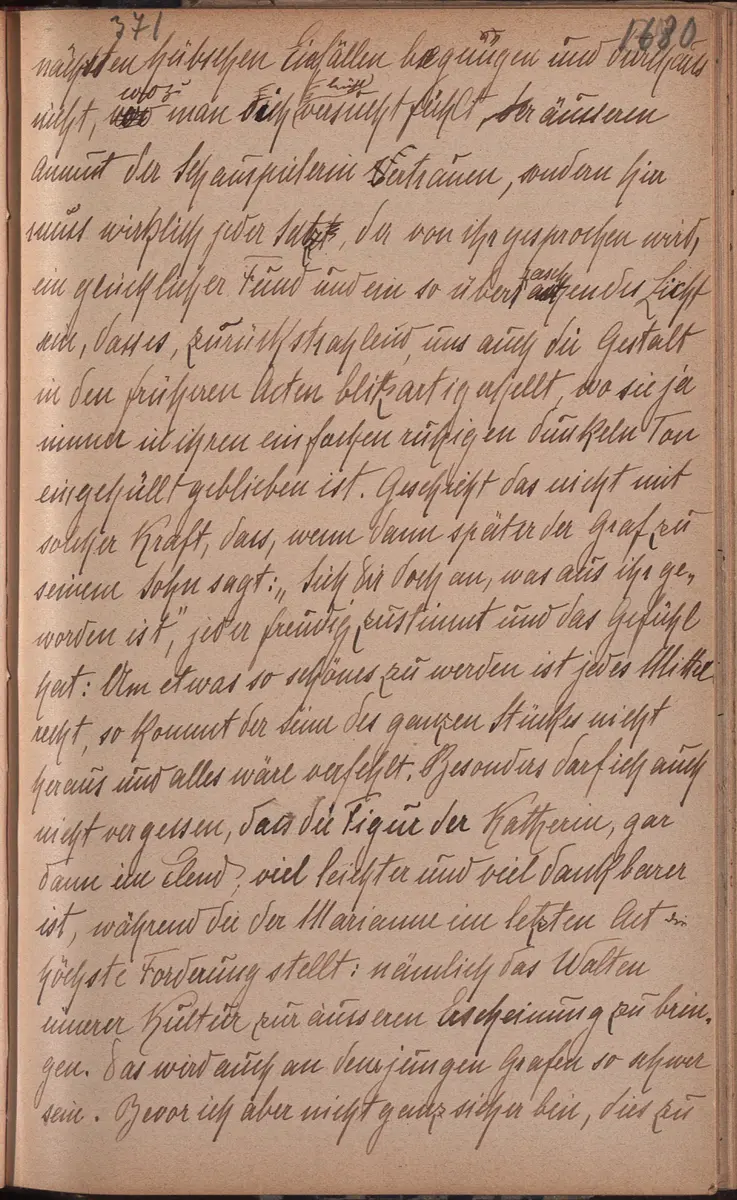 371 1680
nächsten hübschen Einfällen begnügen und durchaus
nicht, wozu man sich leicht versucht fühlt, der äusseren
Anmut der Schauspielerin Vertrauen, sondern hier
muss wirklich jeder Satz, der von ihr gesprochen wird,
ein glücklicher Fund und ein so überraschendes Licht
sein, dass es, zurückstrahlend, uns auch die Gestalt
in den früheren Acten blitzartig erhellt, wo sie ja
immer in ihren einfachen ruhigen dunkeln Ton
eingehüllt geblieben ist. Geschieht das nicht mit
solcher Kraft, dass, wenn dann später der Graf zu
seinem Sohn sagt: „Sieh dir doch an, was aus ihr ge„
worden ist", jeder freudig zustimmt und das Gefühl
hat: Um etwas so schönes zu werden ist jedes Mittel
recht, so kommt der Sinn des ganzen Stückes nicht
heraus und alles wäre verfehlt. Besonders darf ich auch
nicht vergessen, dass die Figur der Katherin, gar
dann im Elend, viel leichter und viel dankbarer
ist, während die der Marianne im letzten Act die
höchste Forderung stellt: nämlich das Walten
innerer Kultur zur äusseren Erscheinung zu brin„
gen. Das wird auch an dem jungen Grafen so schwer
sein. Bevor ich aber nicht ganz sicher bin, dies zu